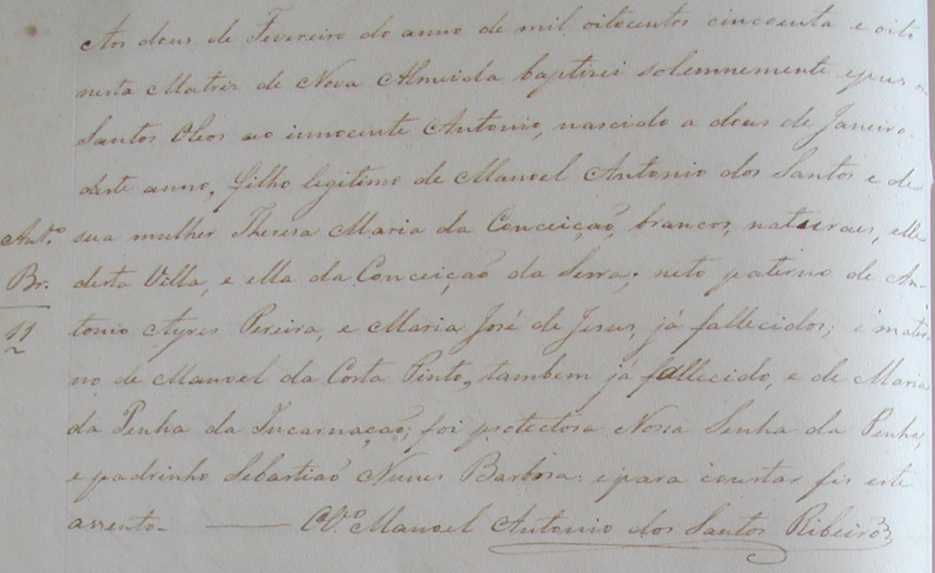 Aos dous de Fevereiro do anno de mil oitocentos cincoenta e oito
nesta Matriz de Nova Almeida baptizei solemnemente e pus os
Santos Oleos ao innocente Antonio, nascido a dous de Janeiro
deste anno, filho legitimo de Manoel Antonio dos Santos e de
Antº. sua mulher Theresa Maria da Conceição, brancos, naturaes, elle
Br. desta Villa, e ella da Conceição da Serra; neto paterno de An-
11 tonio Ayres Pereira, e Maria José de Jesus, já fallecidos; e mater-
no de Manoel da Costa Pinto, tambem já fallecido, e de Maria
da Penha da Incarnação; foi protectora Nossa Senha da Penha,
e padrinho Sebastião Nunes Barbosa: e para constar fis este
assento. O Vº. Manoel Antonio dos Santos Ribeiro